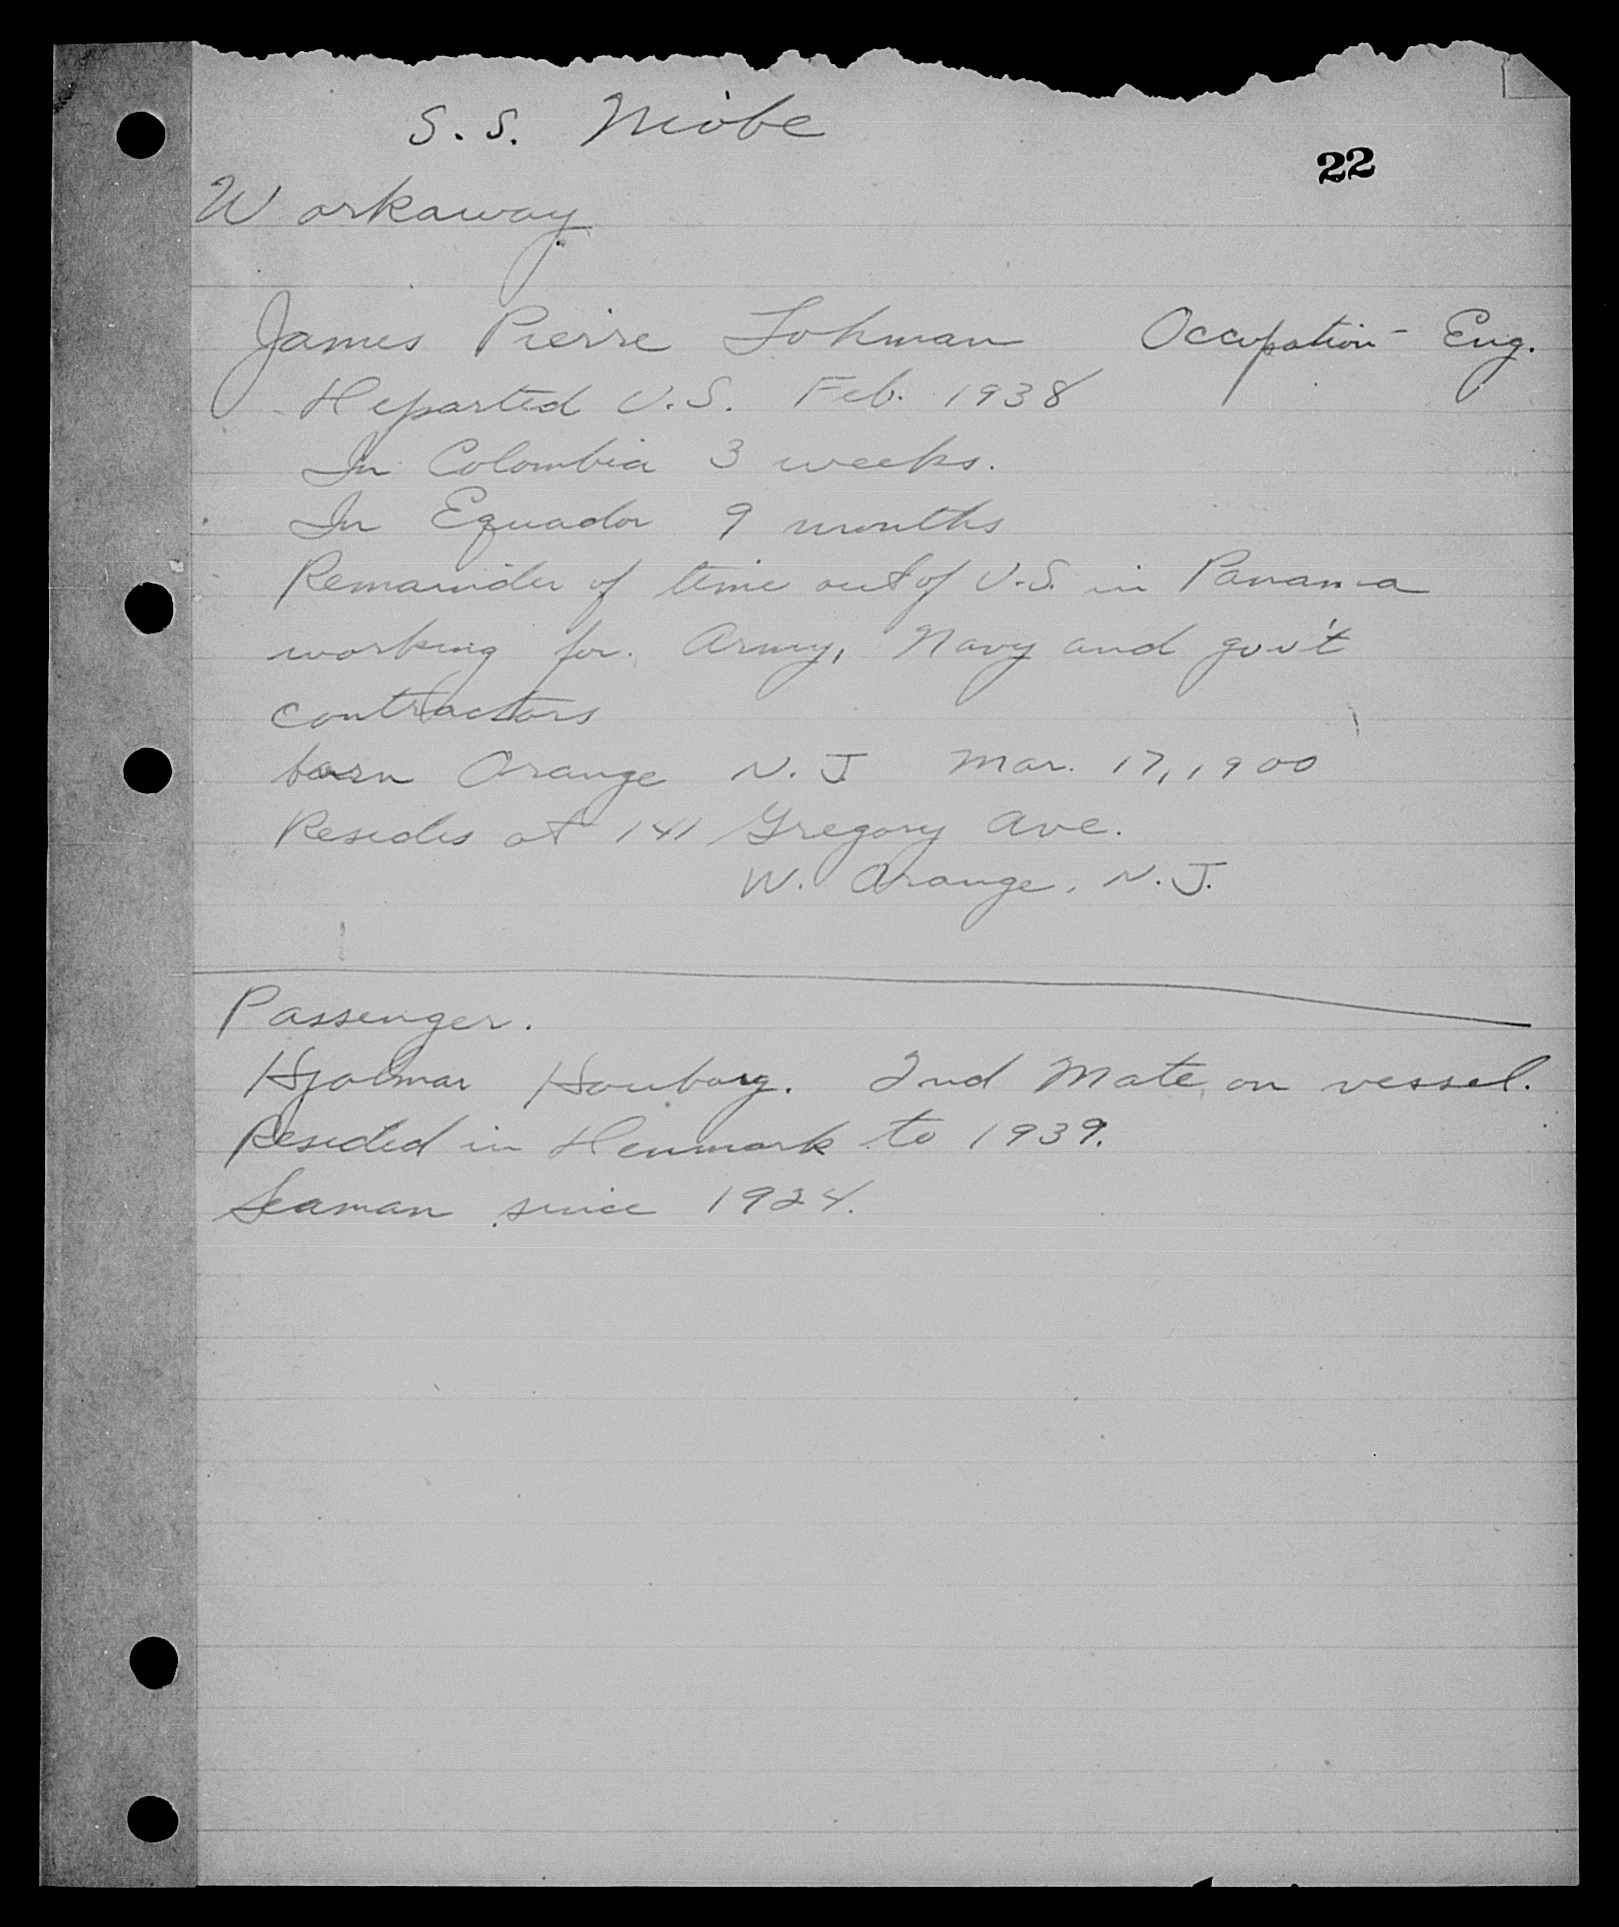 S. S. Niobe
22
Workaway
James Pierre Lohman Occupation - Eng.
Departed U.S. Feb. 1938
In Colombia 3 weeks.
In Equador 9 months
Remainder of time out of U.S. in Panama
working for Army, Navy and gov't
contractors
born Orange N. J. Mar. 17, 1900
Resides at 141 Gregory Ave.
W. Orange, N. J.
Passenger.
Hjalmar 2nd Mate on vessel.
Resided in Denmark to 1939.
Seaman since 1924.